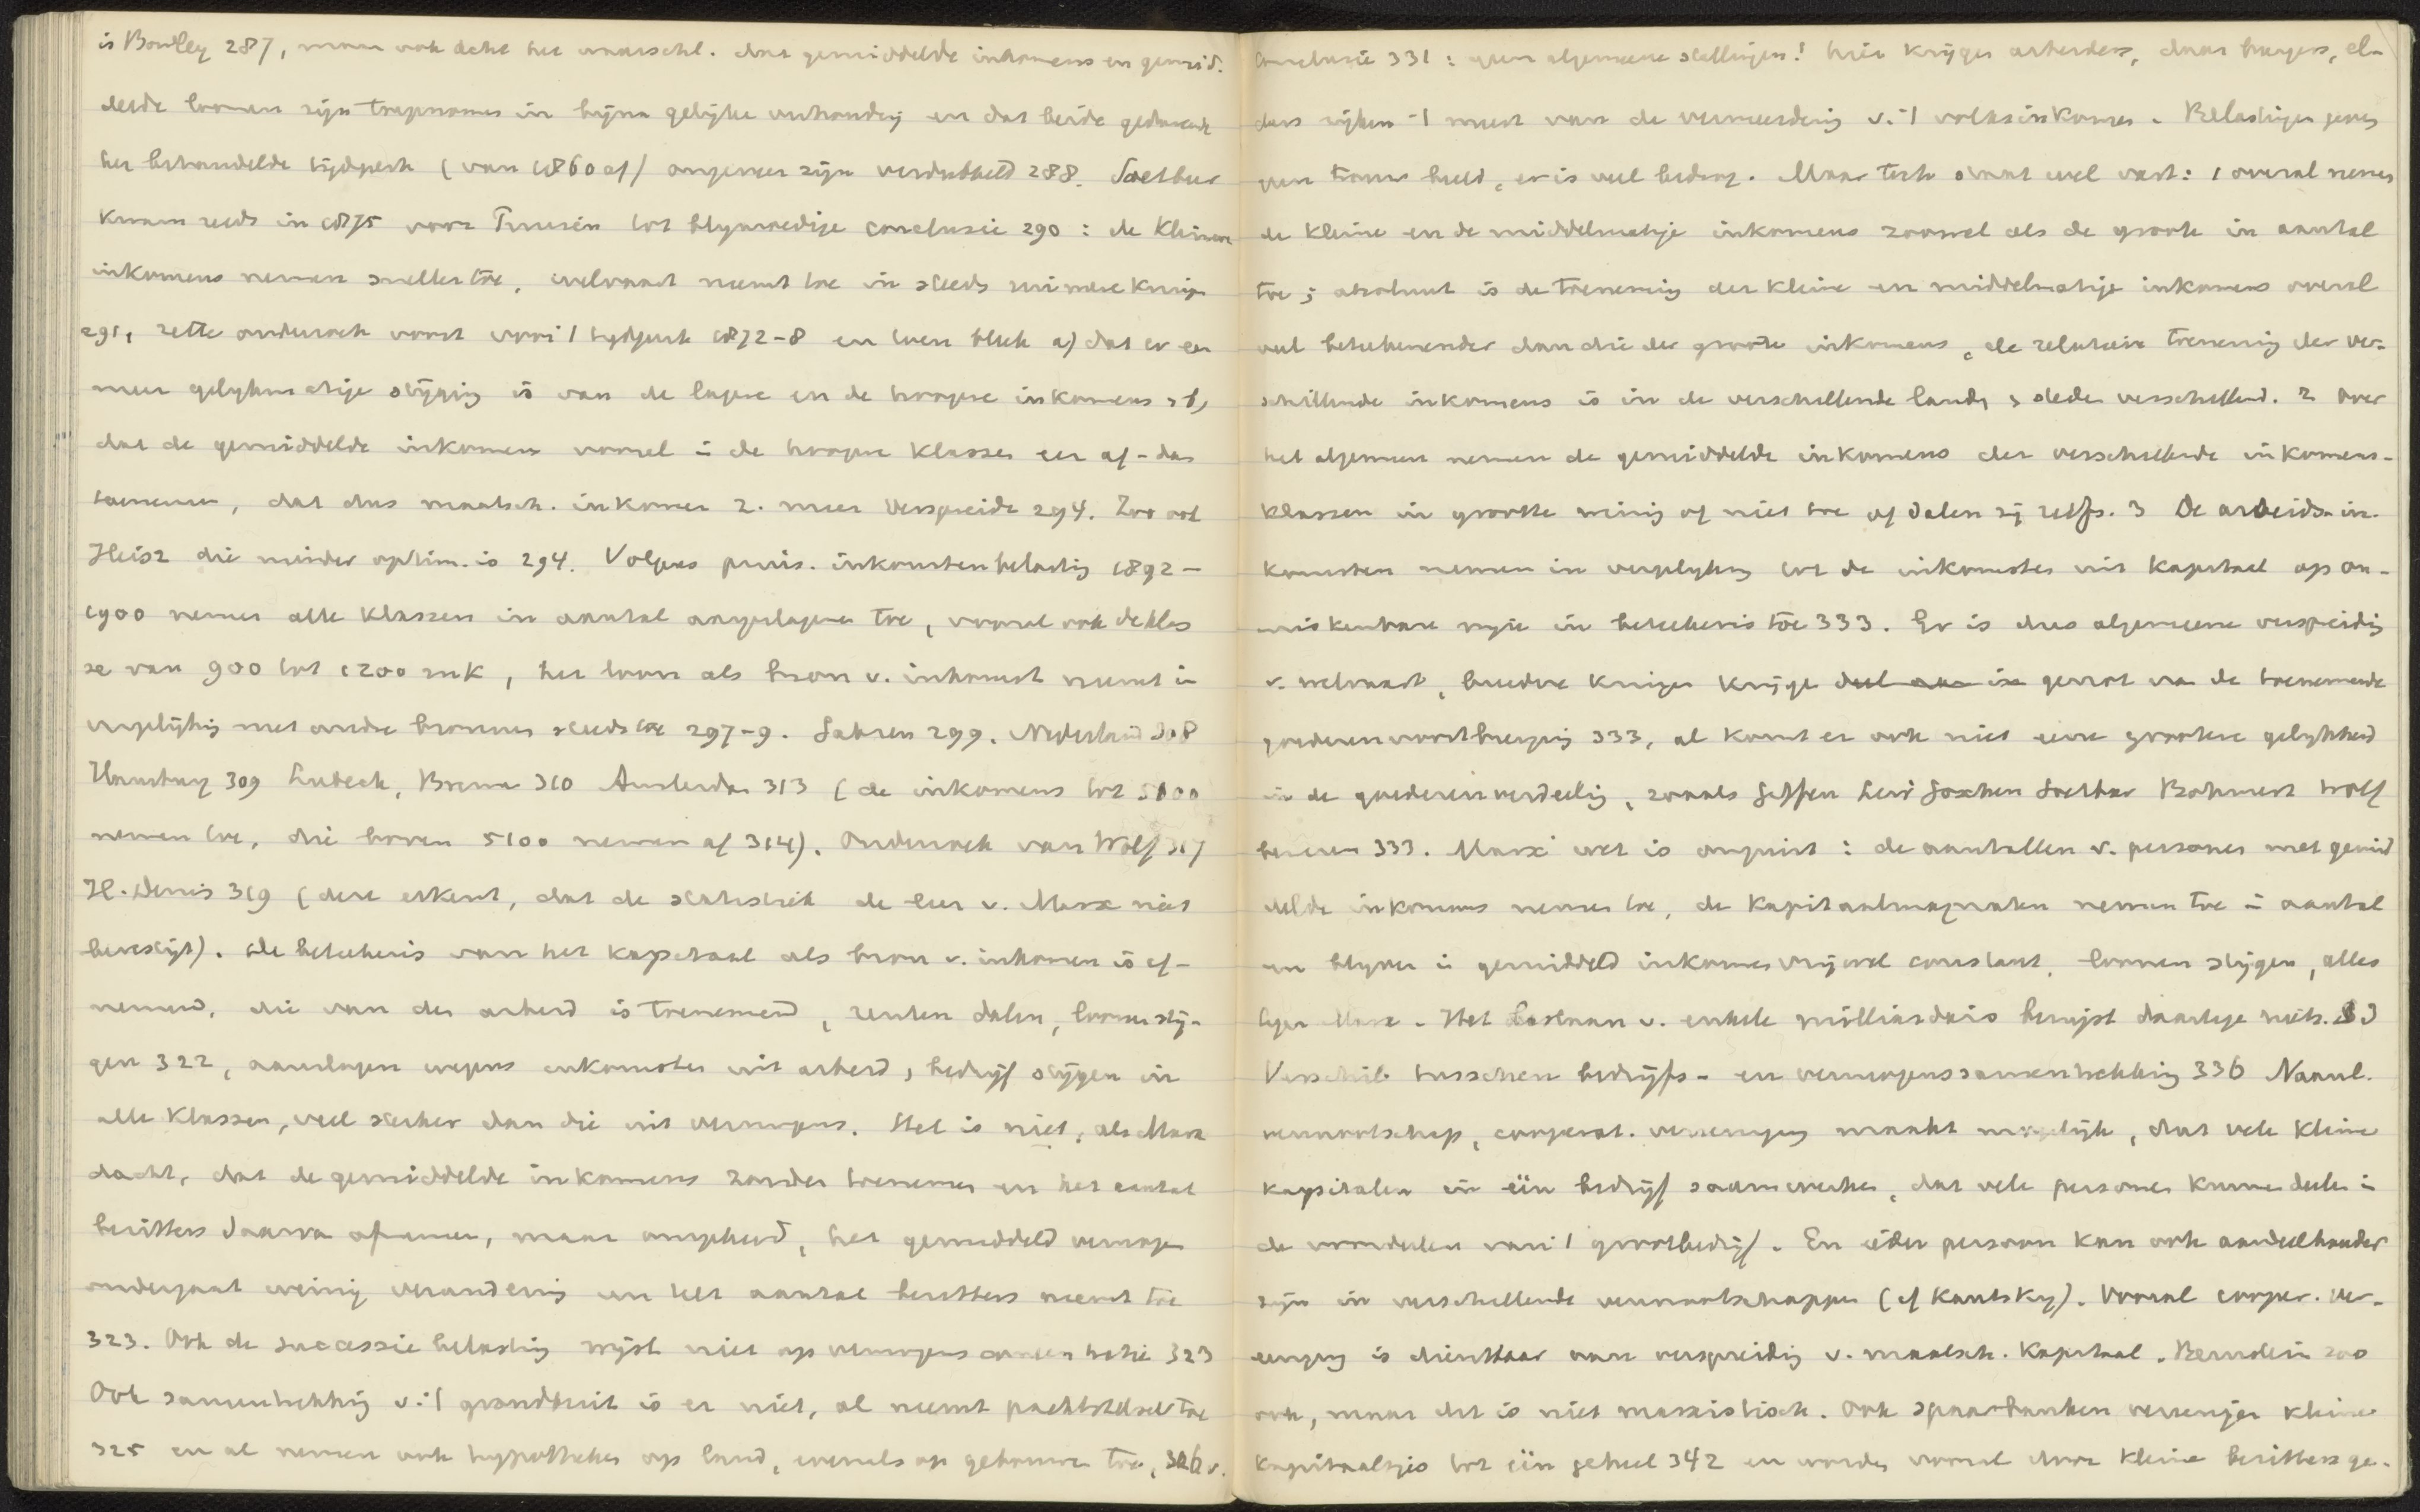 is Bowley 287, maar ook acht het waarschl. dat gemiddelde inkomens en gemid.
delde loonen zijn toegenomen in bijna gelijke verhouding en dat beide gedurende
het behandelde tijdperk (van 1860 af) ongeveer zijn verdubbeld 288. Soetbeer
kwam reeds in 1875 voor Pruisen tot blijmoedige conclusie 290: de kleinere
inkomens nemen sneller toe, welvaart neemt toe in steeds ruimere kringen
291, zette onderzoek voort voor 't tijdperk 1872-8 en toen bleek a) dat er een
meer gelijkmatige stijging is van de lagere en de hoogere inkomens, b)
dat de gemiddelde inkomens vooral in de hoogere klassen eer af- dan
toenemen, dat dus maatsch. inkomen z. meer verspreidt 294. Zoo ook
die minder optim. is 294. Volgens pruis. inkomstenbelasting 1892-
1900 nemen alle klassen in aantal aangeslagenen toe, vooral ook de klas
se van 900 tot 1200 mk, het loon als bron v. inkomst neemt in
vergelijking met andre bronnen steeds toe 297-9. Saksen 299, Nederland 308
Hamburg 309 Lubeck, Bremen 310 Amsterdam 313 (de inkomens tot 5100
nemen toe, die boven 5100 nemen af 314). Onderzoek van Wolf 317
H. Denis 319 (deze erkent, dat de statistiek de leer v. Marx niet
bevestigt). De beteekenis van het kapitaal als bron v. inkomen is af-
nemend, die van den arbeid is toenemend, renten dalen, loonen stij-
gen 322, aanslagen wegens inkomsten uit arbeid, bedrijf stijgen in
alle klassen, veel sterker dan die uit vermogens. Het is niet, als Marx
dacht, dat de gemiddelde inkomens zouden toenemen en het aantal
bezitters daarvan afnemen, maar omgekeerd, het gemiddeld vermogen
ondergaat weinig verandering en het aantal bezitters neemt toe
323. Ook de successiebelasting wijst niet op vermogensconcentratie 323
Ook samentrekking v. 't grondbezit is er niet, al neemt pachtstelsel toe
325 en al nemen ook hypotheken op land, evenals op gebouwen toe, 326 v.
Conclusie 331: geen algemeene stellingen! hier krijgen arbeiders, daar burgers, el-
ders rijken 't meest van de vermeerdering v. 't volksinkomen. Belastingen geven
geen trouw beeld, er is veel bedrog. Maar toch staat wel vast: 1 overal nemen
de kleine en de middelmatige inkomens zoowel als de groote in aantal
toe; absoluut is de toeneming der kleine en middelmatige inkomens overal
veel beteekenender dan die der groote inkomens, de relatieve toeneming der ver-
schillende inkomens is in de verschillende landen, steden verschillend. 2 Over
het algemeen nemen de gemiddelde inkomens der verschillende inkomens-
klassen in grootte weinig of niet toe of dalen zij zelfs. 3 De arbeids-in-
komsten nemen in vergelijking tot de inkomsten uit kapitaal op on-
miskenbare wijze in beteekenis toe 333. Er is dus algemeene verspreiding
v. welvaart, breedere kringen krijgen deel aan in genot van de toenemende
goederenvoortbrenging 333, al komt er ook niet eene grootere gelijkheid
in de goederenverdeeling, zooals Giffen Levi Goschen Soetbeer Bohmert Wolf
beweren 333. Marx' wet is onjuist: de aantallen v. personen met gemid
delde inkomens nemen toe, de kapitaalmagnaten nemen toe in aantal
en blijven in gemiddeld inkomen vrijwel constant, loonen stijgen, alles
tegen Marx. Het bestaan v. enkele milliardairs bewijst daartegen niets.
Verschil tusschen bedrijfs- en vermogenssamentrekking 336 Naaml.
vennootschap, cooperat. vereeniging maakt mogelijk, dat vele kleine
kapitalen in één bedrijf saamwerken, dat vele personen kunnen deelen in
de voordeelen van 't grootbedrijf. En ieder persoon kan ook aandeelhouder
zijn in verschillende vennootschappen (cf Kautsky). Vooral cooper. ver-
eeniging is dienstbaar aan verspreiding v. maatsch. kapitaal. Bernstein zoo
ook, maar dit is niet marxistisch. Ook spaarbanken vereenigen kleine
kapitaaltjes tot één geheel 342 en worden vooral door kleine bezitters ge-